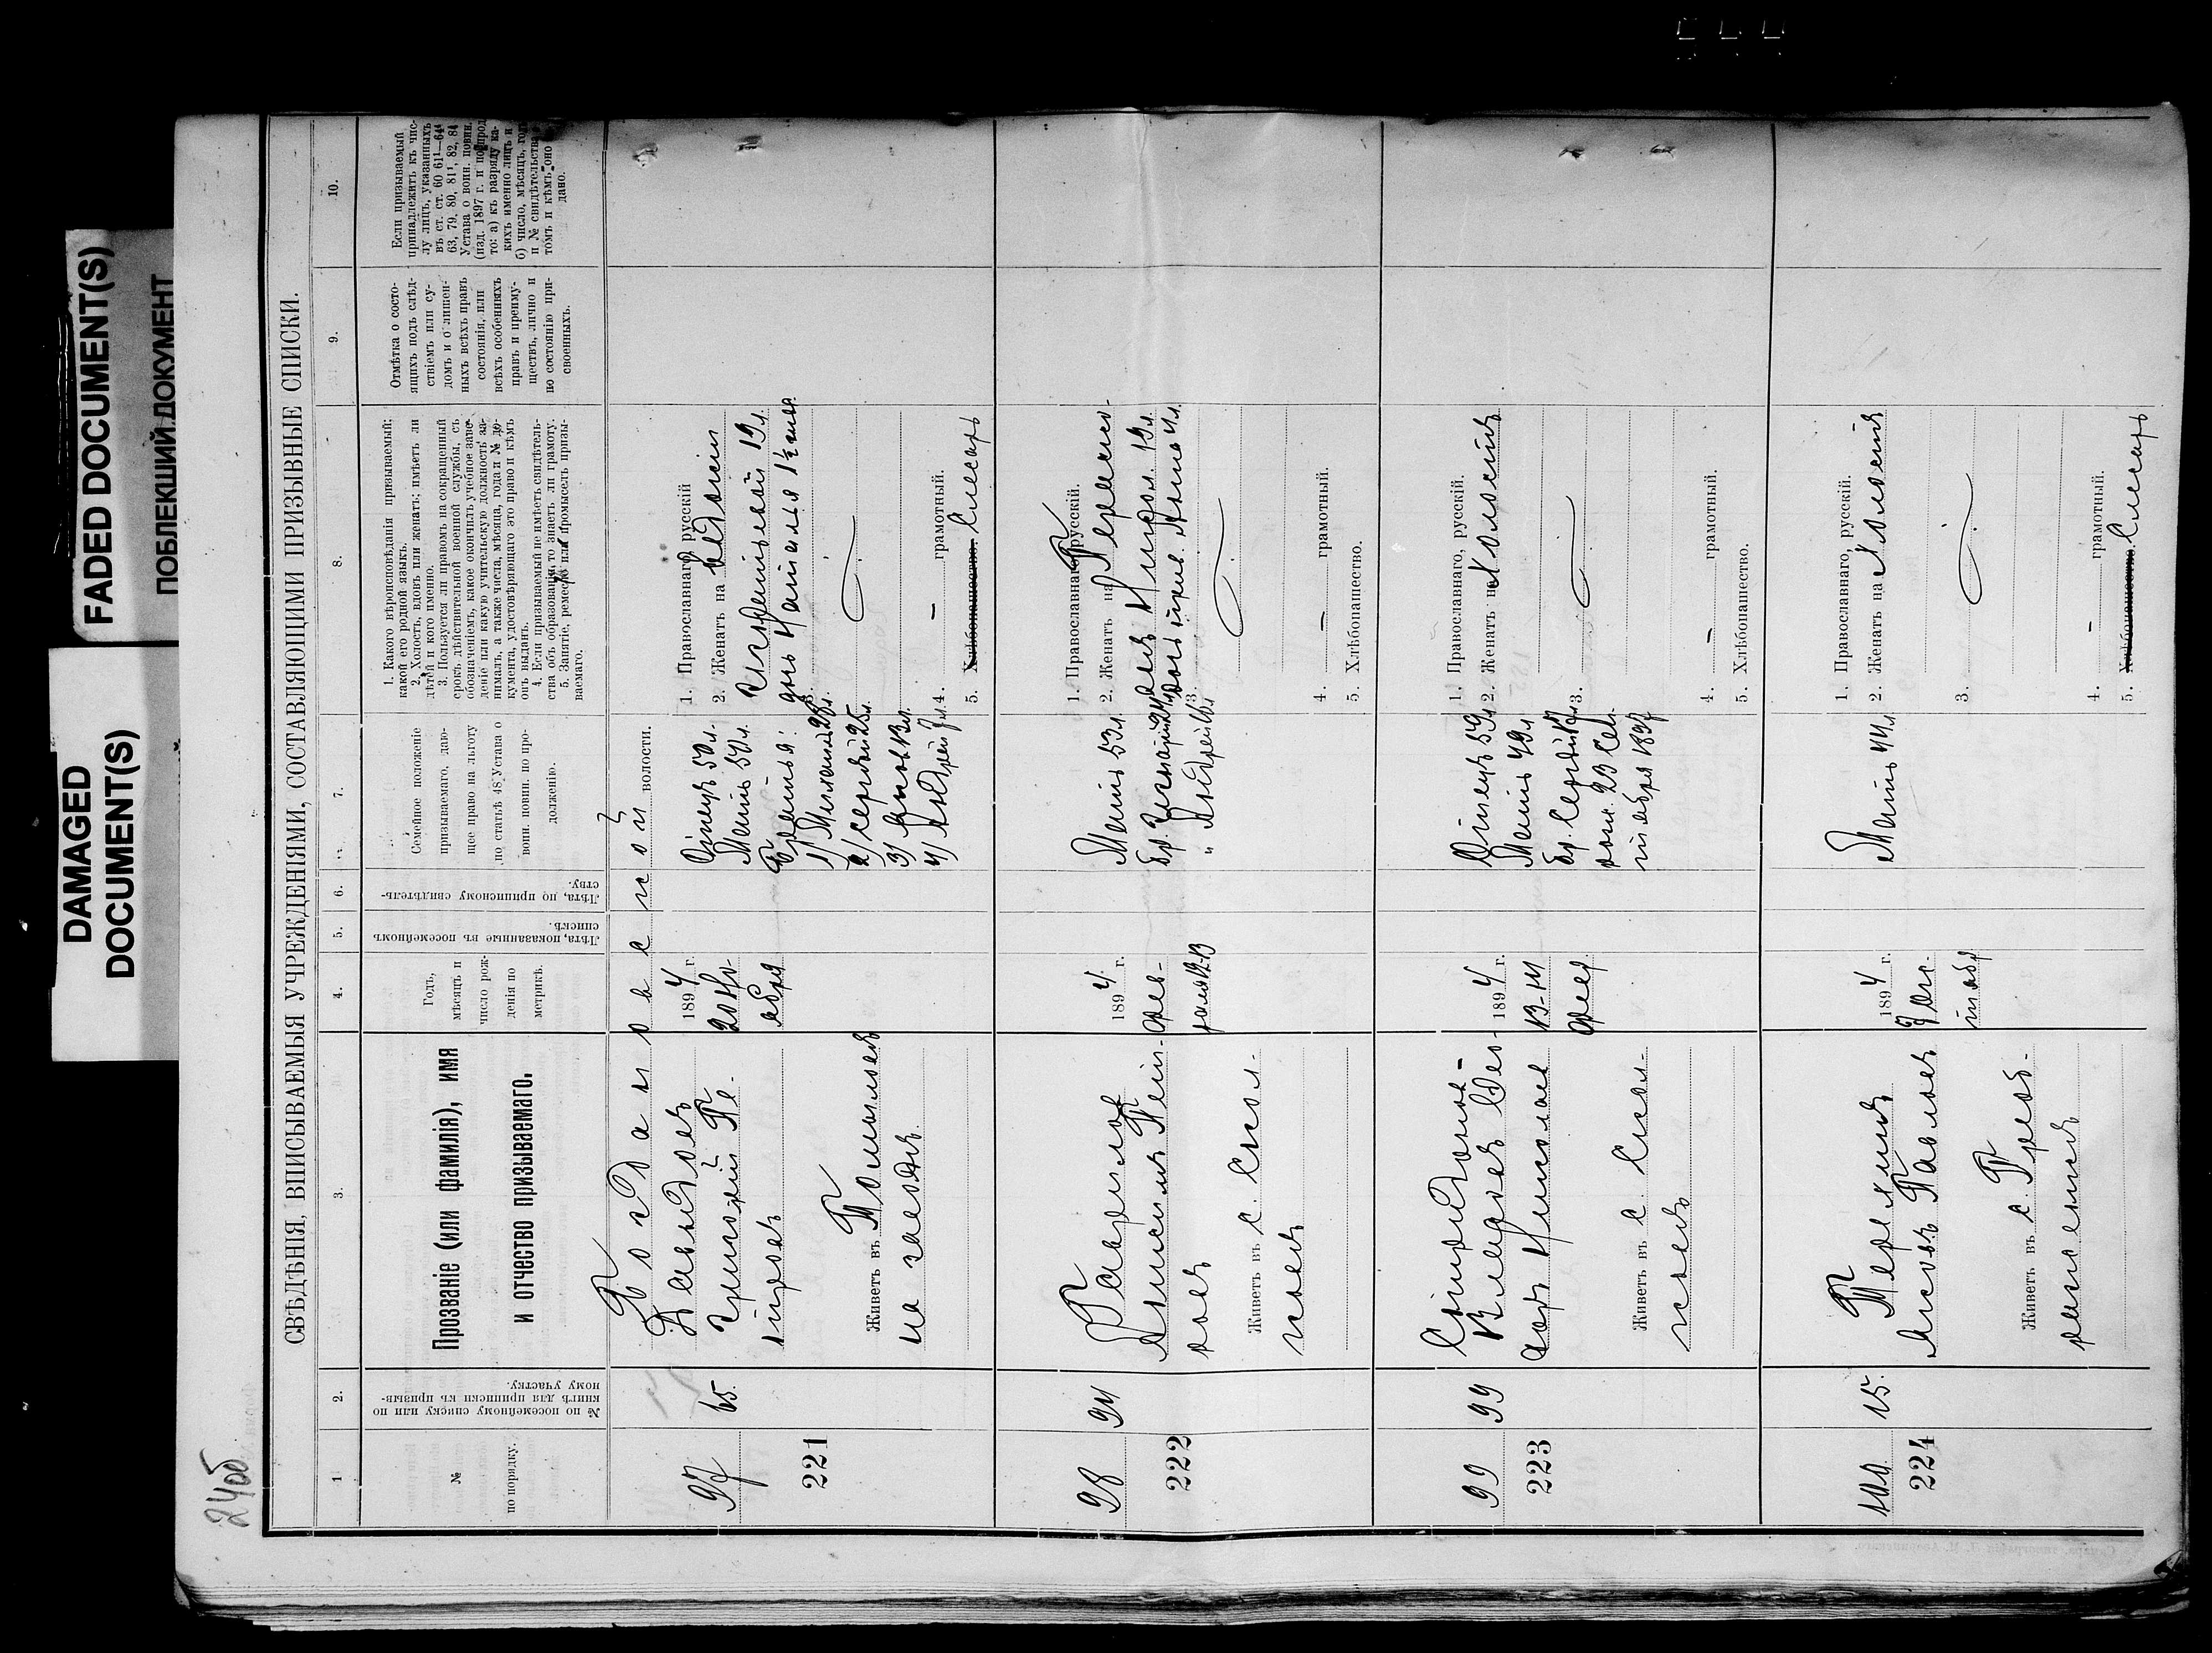 DAMAGED
DOCUMENT(S)
FADED DOCUMENT(S)
ПОБЛЕКШИЙ ДОКУМЕНТ
240об
СВѢДѢНІЯ, ВПИСЫВАЕМЫЯ УЧРЕЖДЕНІЯМИ, СОСТАВЛЯЮЩИМИ ПРИЗЫВНЫЕ СПИСКИ.
1
2.
3.
4.
5.
6.
7.
8.
9.
10.
№
по порядку.
№ по посемейному списку или по
книгѣ для приписки къ призыв-
ному участку.
Прозваніе (или фамилія), имя
и отчество призываемаго.
Годъ,
мѣсяцъ и
число рож-
денія по
метрикѣ.
Лѣта, показанные въ посемейномъ
спискѣ.
Лѣта, по приписному свидѣтель-
ству.
Семейное положеніе
призываемаго, даю-
щее право на льготу
по статьѣ 48 Устава о
воин. повин. по про-
долженію.
1. Какого вѣроисповѣданія призываемый;
какой его родной языкъ.
2. Холостъ, вдовъ или женатъ; имѣетъ ли
дѣтей и кого именно.
3. Пользуется ли правомъ на сокращенный
срокъ дѣйствительной военной службы, съ
обозначеніемъ, какое окончилъ учебное заве-
деніе или какую учительскую должность за-
нималъ, а также числа, мѣсяца, года и № до-
кумента, удостовѣряющаго это право и кѣмъ
онъ выданъ.
4. Если призываемый не имѣетъ свидѣтель-
ства объ образованіи, то знаетъ ли грамоту.
5. Занятіе, ремесло или промыселъ призы-
ваемаго.
Отмѣтка о состо-
ящихъ подъ слѣд-
ствіемъ или су-
домъ и о лишен-
ныхъ всѣхъ правъ
состоянія, или
всѣхъ особенныхъ
правъ и преиму-
ществъ, лично и
по состоянію при-
своенныхъ.
Если призываемый
принадлежитъ къ чис-
лу лицъ, указанныхъ
въ ст. ст. 60 61¹—64⁴
63, 79, 80, 81¹, 82, 84
Устава о воин. повин.
(изд. 1897 г. и по прод
то: а) къ разряду ка-
кихъ именно лицъ и
б) число, мѣсяцъ, годъ
и № свидѣтельства
томъ и кѣмъ оно
дано.
Богдановской волости.
97
221
65.
Давыдовъ
Григорій Пе-
тровъ
Живетъ въ
на заводѣ
1894 г.
20 Но-
ября
Отецъ 50 л.
Мать 50 л.
Братья:
1/ Михаилъ 28 л.
2/ Сергѣй 25 л.
3/ 13 л.
4/ Андрей 7 л.
1. Православнаго, русскій
2. Женатъ на Евдокіи
19 л.
дочь Наталья 1½ года
3.
4. — грамотный.
5. Хлѣбопашество. Слесарь
98
222
94
Гавриловъ
Алексѣй Пет-
ровъ
Живетъ въ с. Скол-
ковѣ
1894 г.
Фев-
раля 12-13
Мать 53 л.
Бр. 24
" Андрей 16 л.
1. Православнаго, русскій.
2. Женатъ на Герасимо-
19 л.
3.
4. — грамотный.
5. Хлѣбопашество.
99
223
99
Спиридоновъ-
Власовъ Ѳео-
доръ Николаев
Живетъ въ с Скол-
ковѣ
1894 г.
13-14
февр
Отецъ 59 л
Мать 49 л
Бр. Сергѣй 17 л
рожд. 23 Сен-
тября 1897
1. Православнаго, русскій.
2. Женатъ на Холостъ
3.
4. — грамотный.
5. Хлѣбопашество.
100
224
15.
Терехинъ
Яковъ Павловъ
Живетъ въ с. Грод-
1894 г.
7 Ок-
тябр
Мать 44 л
1. Православнаго, русскій.
2. Женатъ на Холостъ
3.
4. — грамотный.
5. Хлѣбопашество. Слесарь